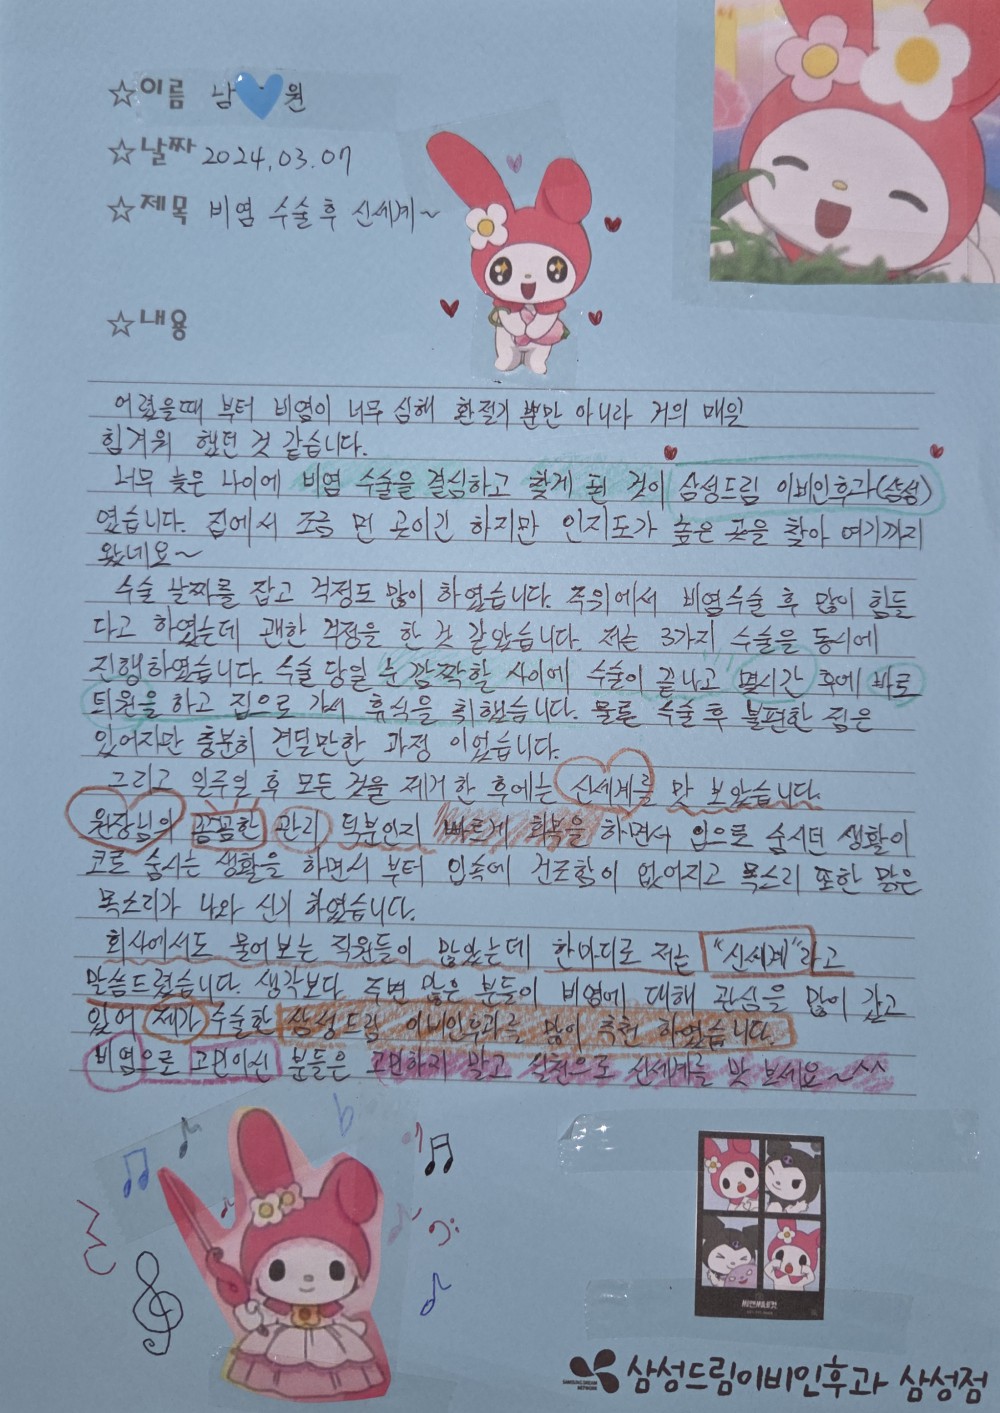 ☆이름 남💙원
☆날짜 2024.03.07
☆제목 비염 수술 후 신세계~
☆내용
어렸을때 부터 비염이 너무 심해 환절기 뿐만 아니라 거의 매일
힘겨워 했던 것 같습니다.
너무 늦은 나이에 비염 수술을 결심하고 찾게 된 것이 삼성드림 이비인후과(삼성)
였습니다. 집에서 조금 먼 곳이긴 하지만 인지도가 높은 곳을 찾아 여기까지
왔네요~
수술 날짜를 잡고 걱정도 많이 하였습니다. 주위에서 비염수술 후 많이 힘들
다고 하였는데 괜한 걱정을 한 것 같았습니다. 저는 3가지 수술을 동시에
진행하였습니다. 수술 당일 눈 깜짝할 사이에 수술이 끝나고 몇시간 후에 바로
퇴원을 하고 집으로 가서 휴식을 취했습니다. 물론 수술 후 불편한 점은
있어지만 충분히 견딜만한 과정 이었습니다.
그리고 일주일 후 모든 것을 제거한 후에는 신세계를 맛 보았습니다.
원장님의 꼼꼼한 관리 덕분인지 빠르게 회복을 하면서 입으로 숨시던 생활이
코로 숨시는 생활을 하면서 부터 입속에 건조함이 없어지고 목소리 또한 맑은
목소리가 나와 신기 하였습니다.
회사에서도 물어보는 직원들이 많았는데 한마디로 저는 "신세계"라고
말씀드렸습니다. 생각보다 주변 많은 분들이 비염에 대해 관심을 많이 갖고
있어 제가 수술한 삼성드림 이비인후과를 많이 추천 하였습니다.
비염으로 고민이신 분들은 고민하지 말고 실천으로 신세계를 맛 보세요~^^
삼성드림이비인후과 삼성점